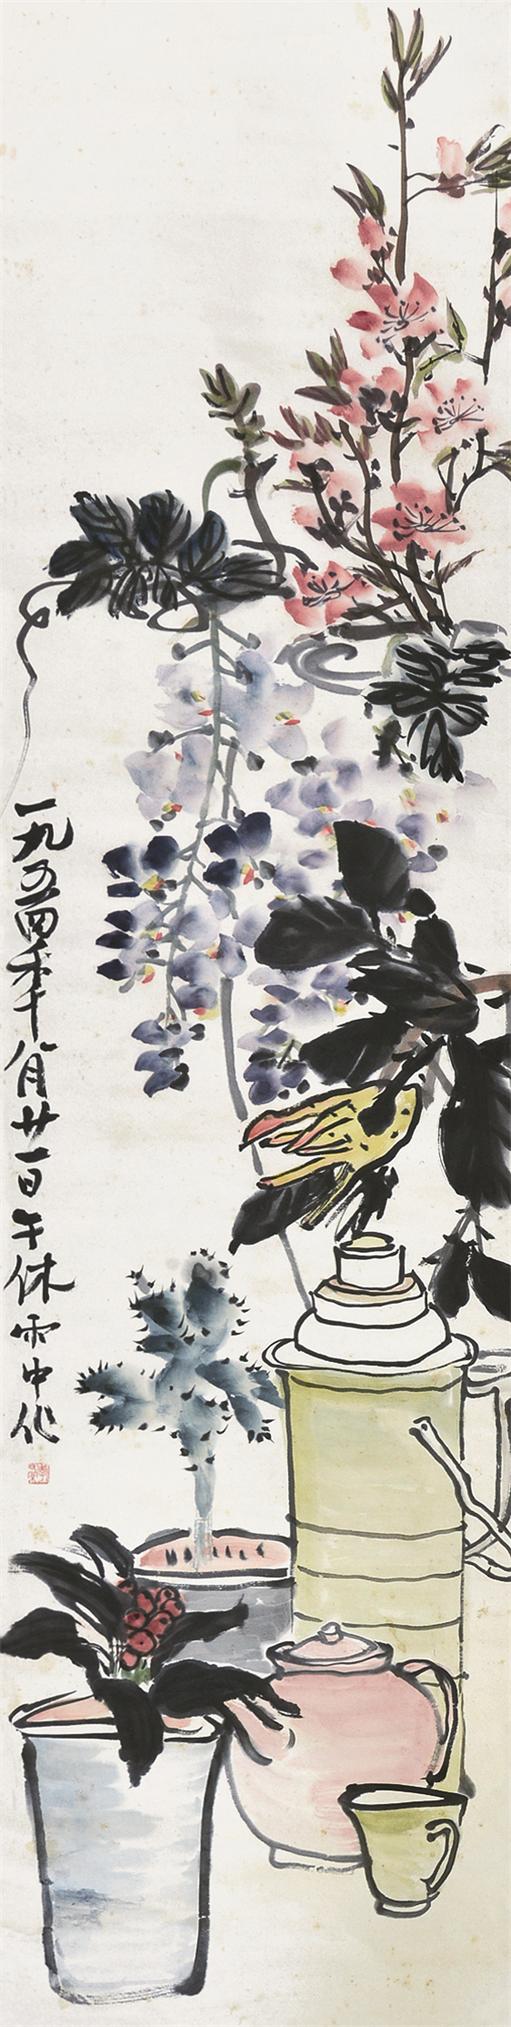 一九五四年八月廿一日午休雨中作